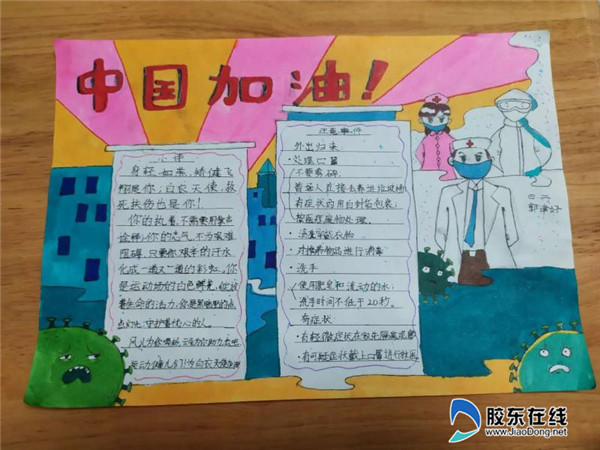 中国加油!
小诗
身轻如燕,矫健飞
翔是你;白衣天使,救
死扶伤也是你!
你的执着,不需要用掌声
诠释;你的志气,不为艰难
阻碍。只要你艰辛的汗水
化成一道又一道的彩虹。你
是运动场的白色
着生命的活力,你是黑暗里的点
点灯火,守护着
注意事件
外出归来
·处理口罩
(不要乱碰。
普通人直接丢弃进垃圾桶
有症状的用白封装包裹,
按医疗废物处理。
·衣物
·对携带物品进行消毒
·洗手
(使用肥皂和流动的水;
洗手时间不低于20秒。
有症状
·有轻微症状在家中隔离观察
·有可疑症状戴上口罩进行
胶东在线
www.JiaoDong.net